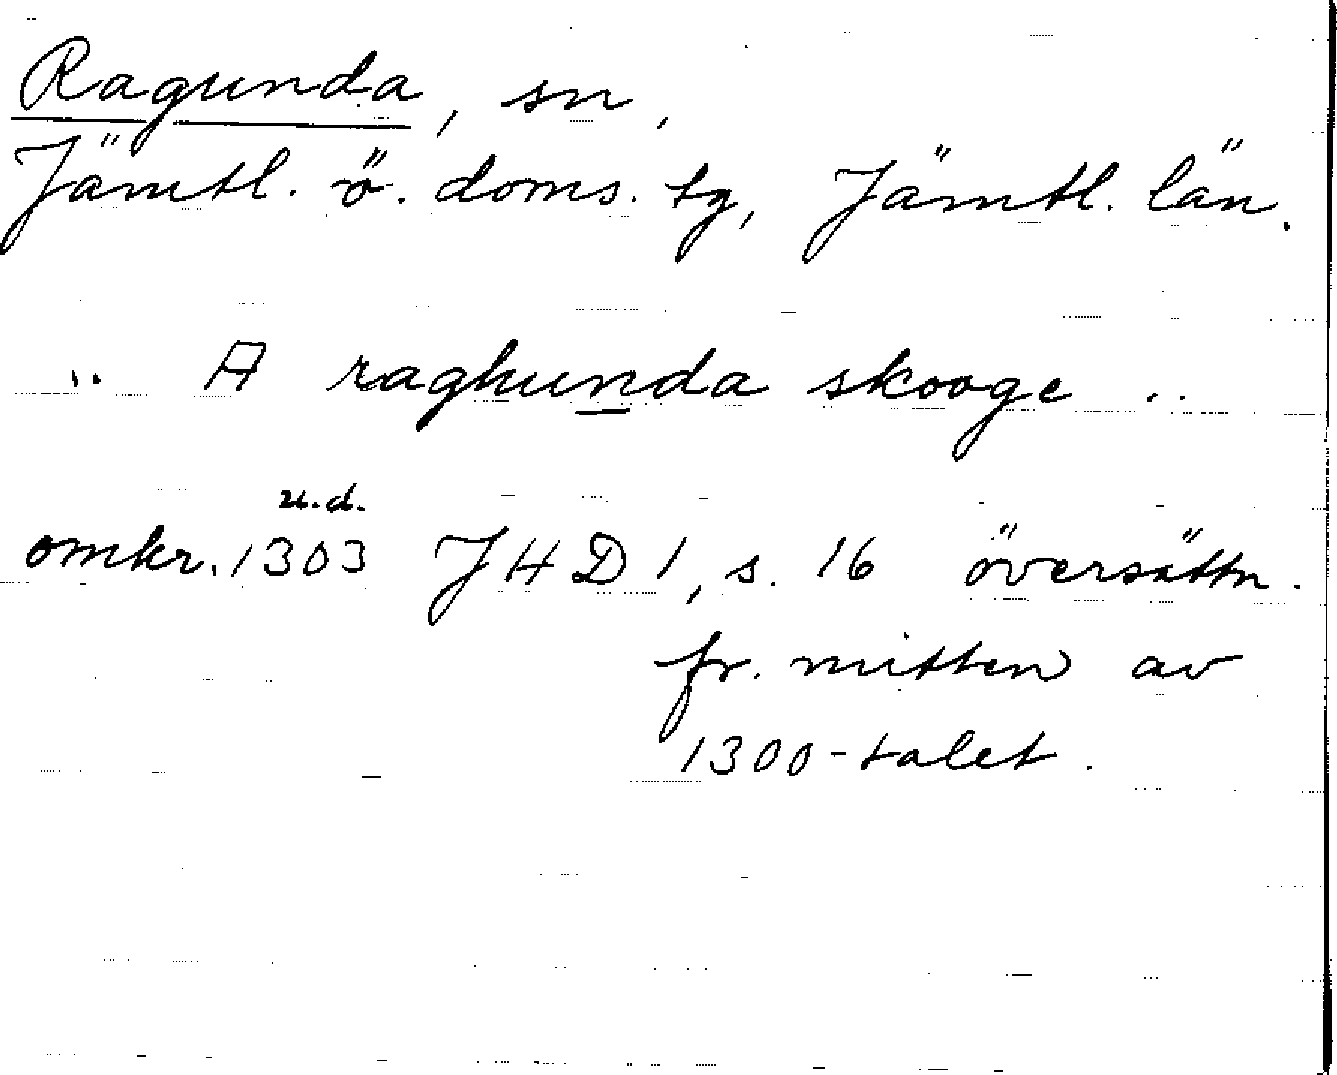 Ragunda, sn,
Jämtl. ö. doms. tg, Jämtl. län.
.. A raghunda skooge ..
u.d.
omkr. 1303 JHD 1, s. 16 översättn.
fr. mitten av
1300-talet.